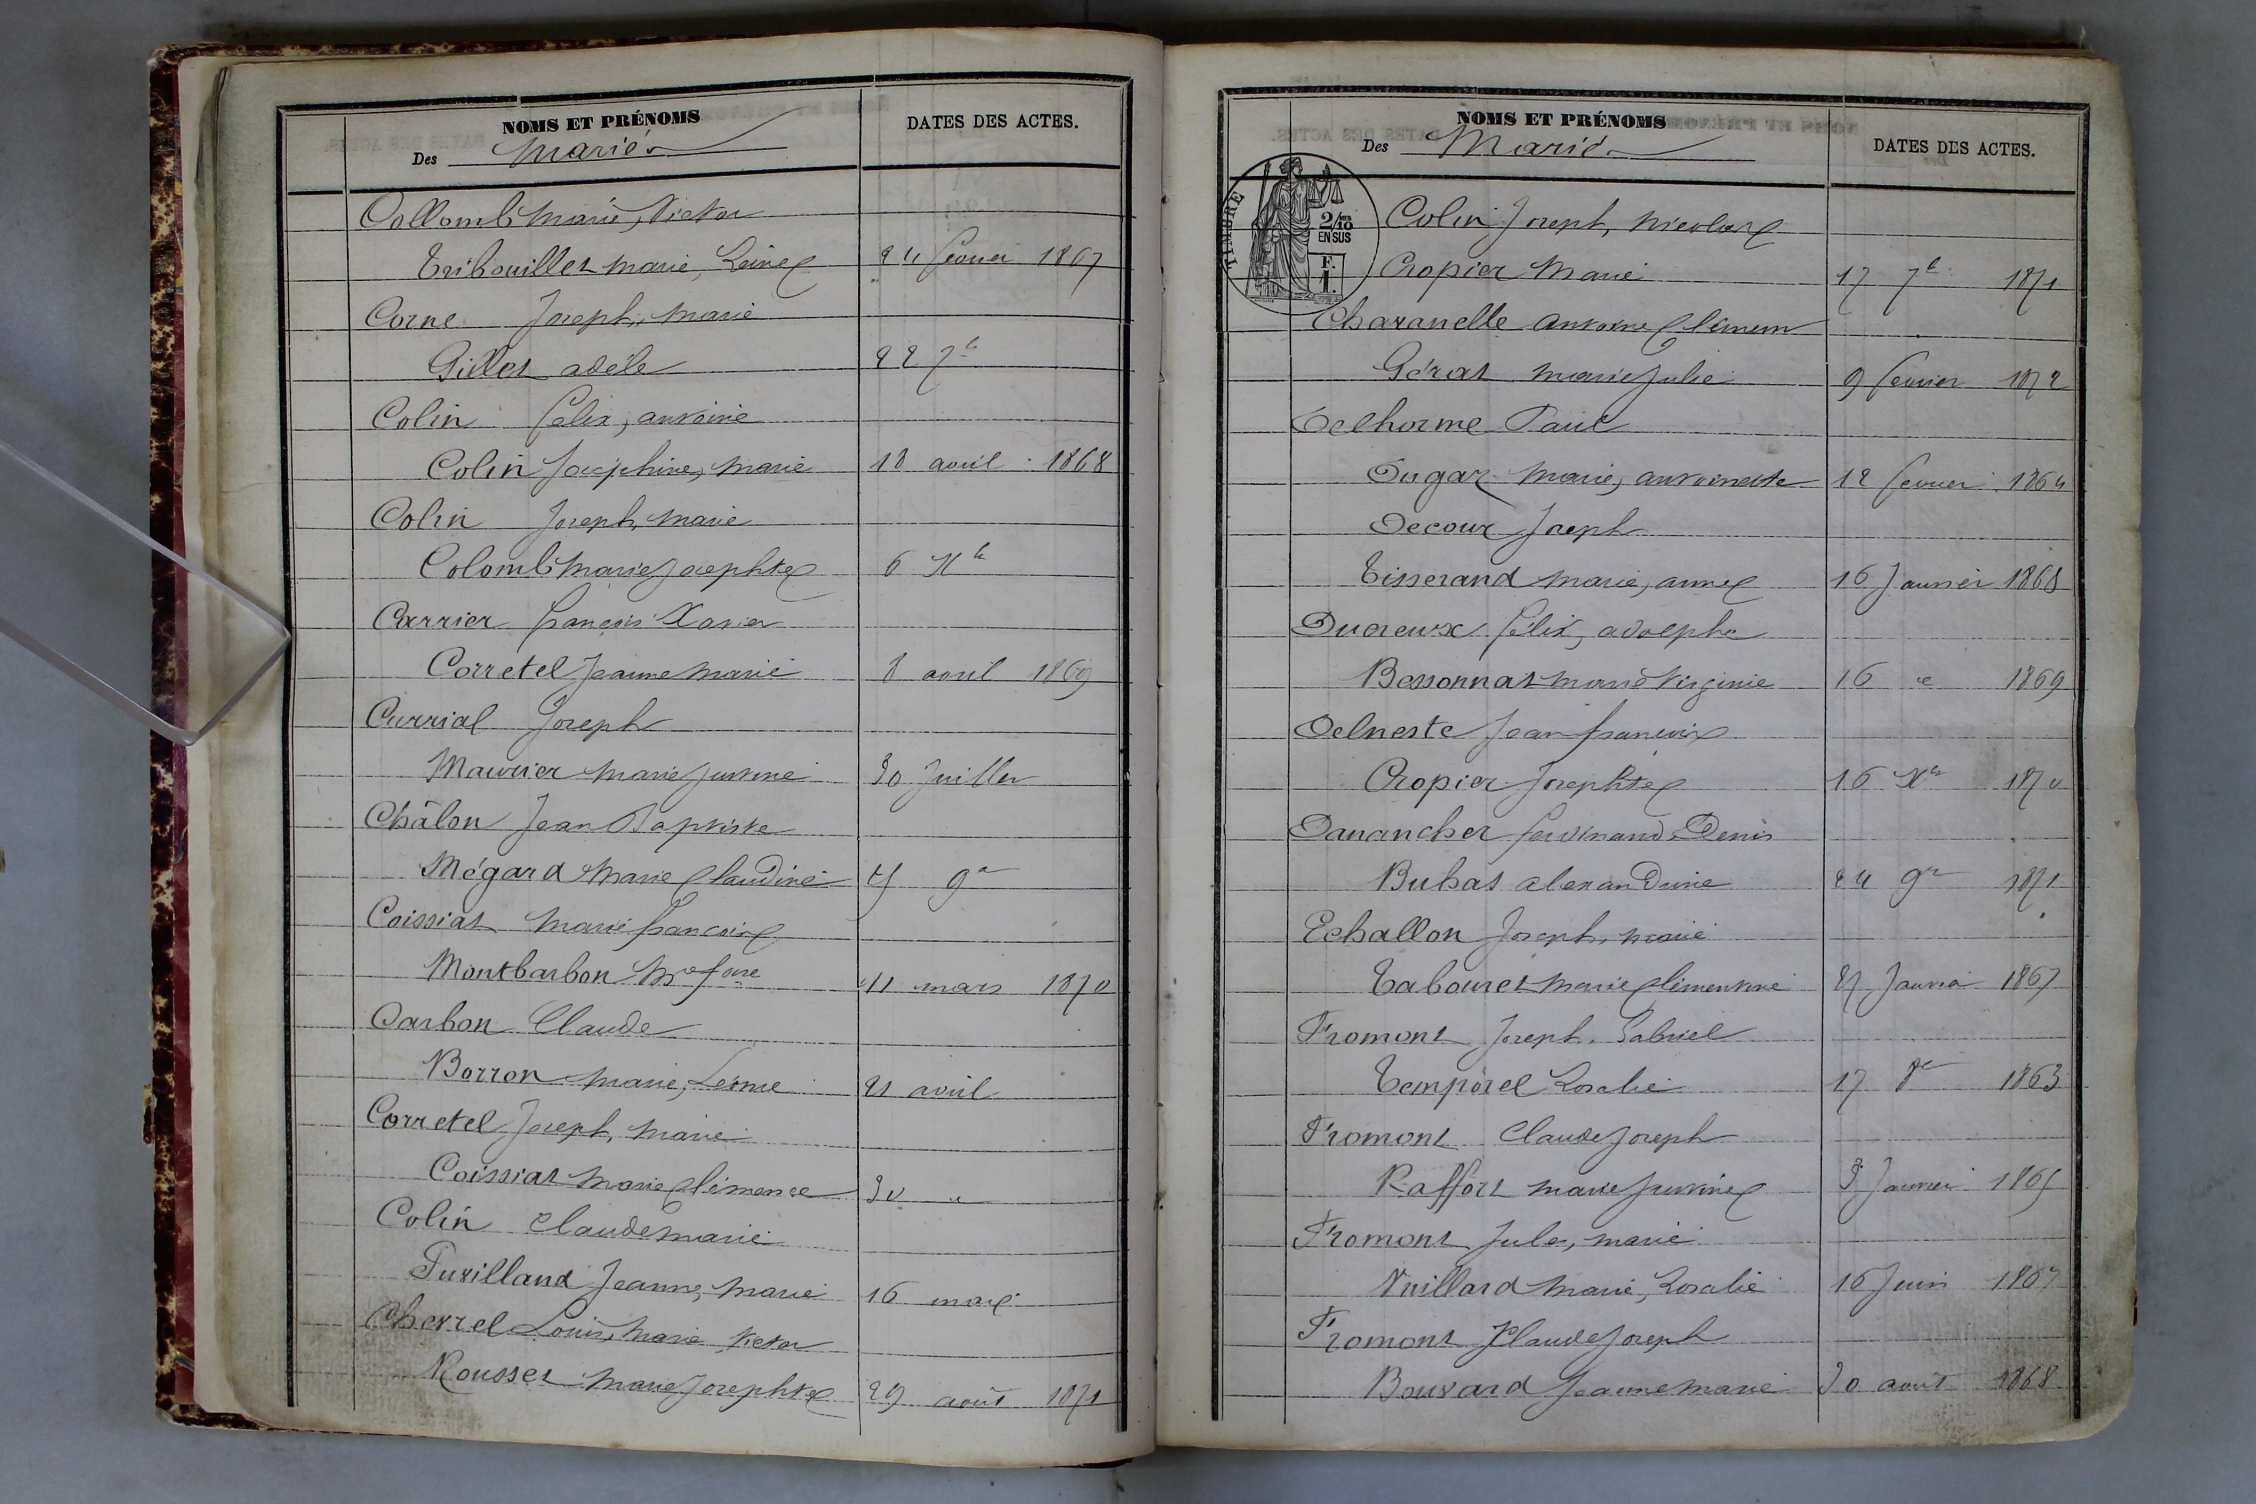 NOMS ET PRÉNOMS
Des Mariés
DATES DES ACTES.
Collomb Marie, Victor
Tribouillet Marie, Reine 24 février 1867
Corne Joseph, Marie
Gillet adèle 22 7b
Colin félix, antoine
Colin Joséphine, Marie 18 avril 1868
Colin Joseph, Marie
Colomb Marie Josephte 6 Xb
Carrier françois Xavier
Corretel Jeanne Marie 8 avril 1869
Currial Joseph
Maurier Marie Justine 30 Juillet
Châlon Jean Baptiste
Mégard Marie Claudine 9e
Coissiat Marie françois
Montbarbon Me 11 mars 1870
Carbon Claude
Borron Marie, Léonie 21 avril
Corretel Joseph, Marie
Coissiat Marie Clémence 30 "
Colin Claude Marie
Tuvilland Jeanne, Marie 16 mai
Chevrel Louis, Marie Victor
Rousset Marie Josephte 29 août 1871
NOMS ET PRÉNOMS
Des Mariés
DATES DES ACTES.
TIMBRE
2/10
EN SUS
F.
1.
Colin Joseph, Nicolas
Cropier Marie 17 7b 1871
Charanelle antoine Clément
Gérat Marie Julie 9 fevrier 1872
Delhorme Paul
Dugaz Marie, antoinette 12 fevrier 1864
Decour Joseph
Tisserand Marie, anne 16 Janvier 1868
Ducreux félix, adolphe
Bessonnat Marie Virginie 16 1869
Delneste Jean françois
Cropier Josephte 16 Xb 1870
Danancher ferdinand Denis
Buhas alexandrine 24 9e 1871
Echallon Joseph, Marie
Tabouret Marie Clémentine Janvier 1867
Fromont Joseph, Gabriel
Temporel Rosalie 17 8e 1863
Fromont Claude Joseph
Raffort Marie Justine 3 Janvier 1865
Fromont Jules, Marie
Vuillard Marie, Rosalie 16 Juin 1867
Fromont Claude Joseph
Bouvard Jeanne Marie 30 août 1868